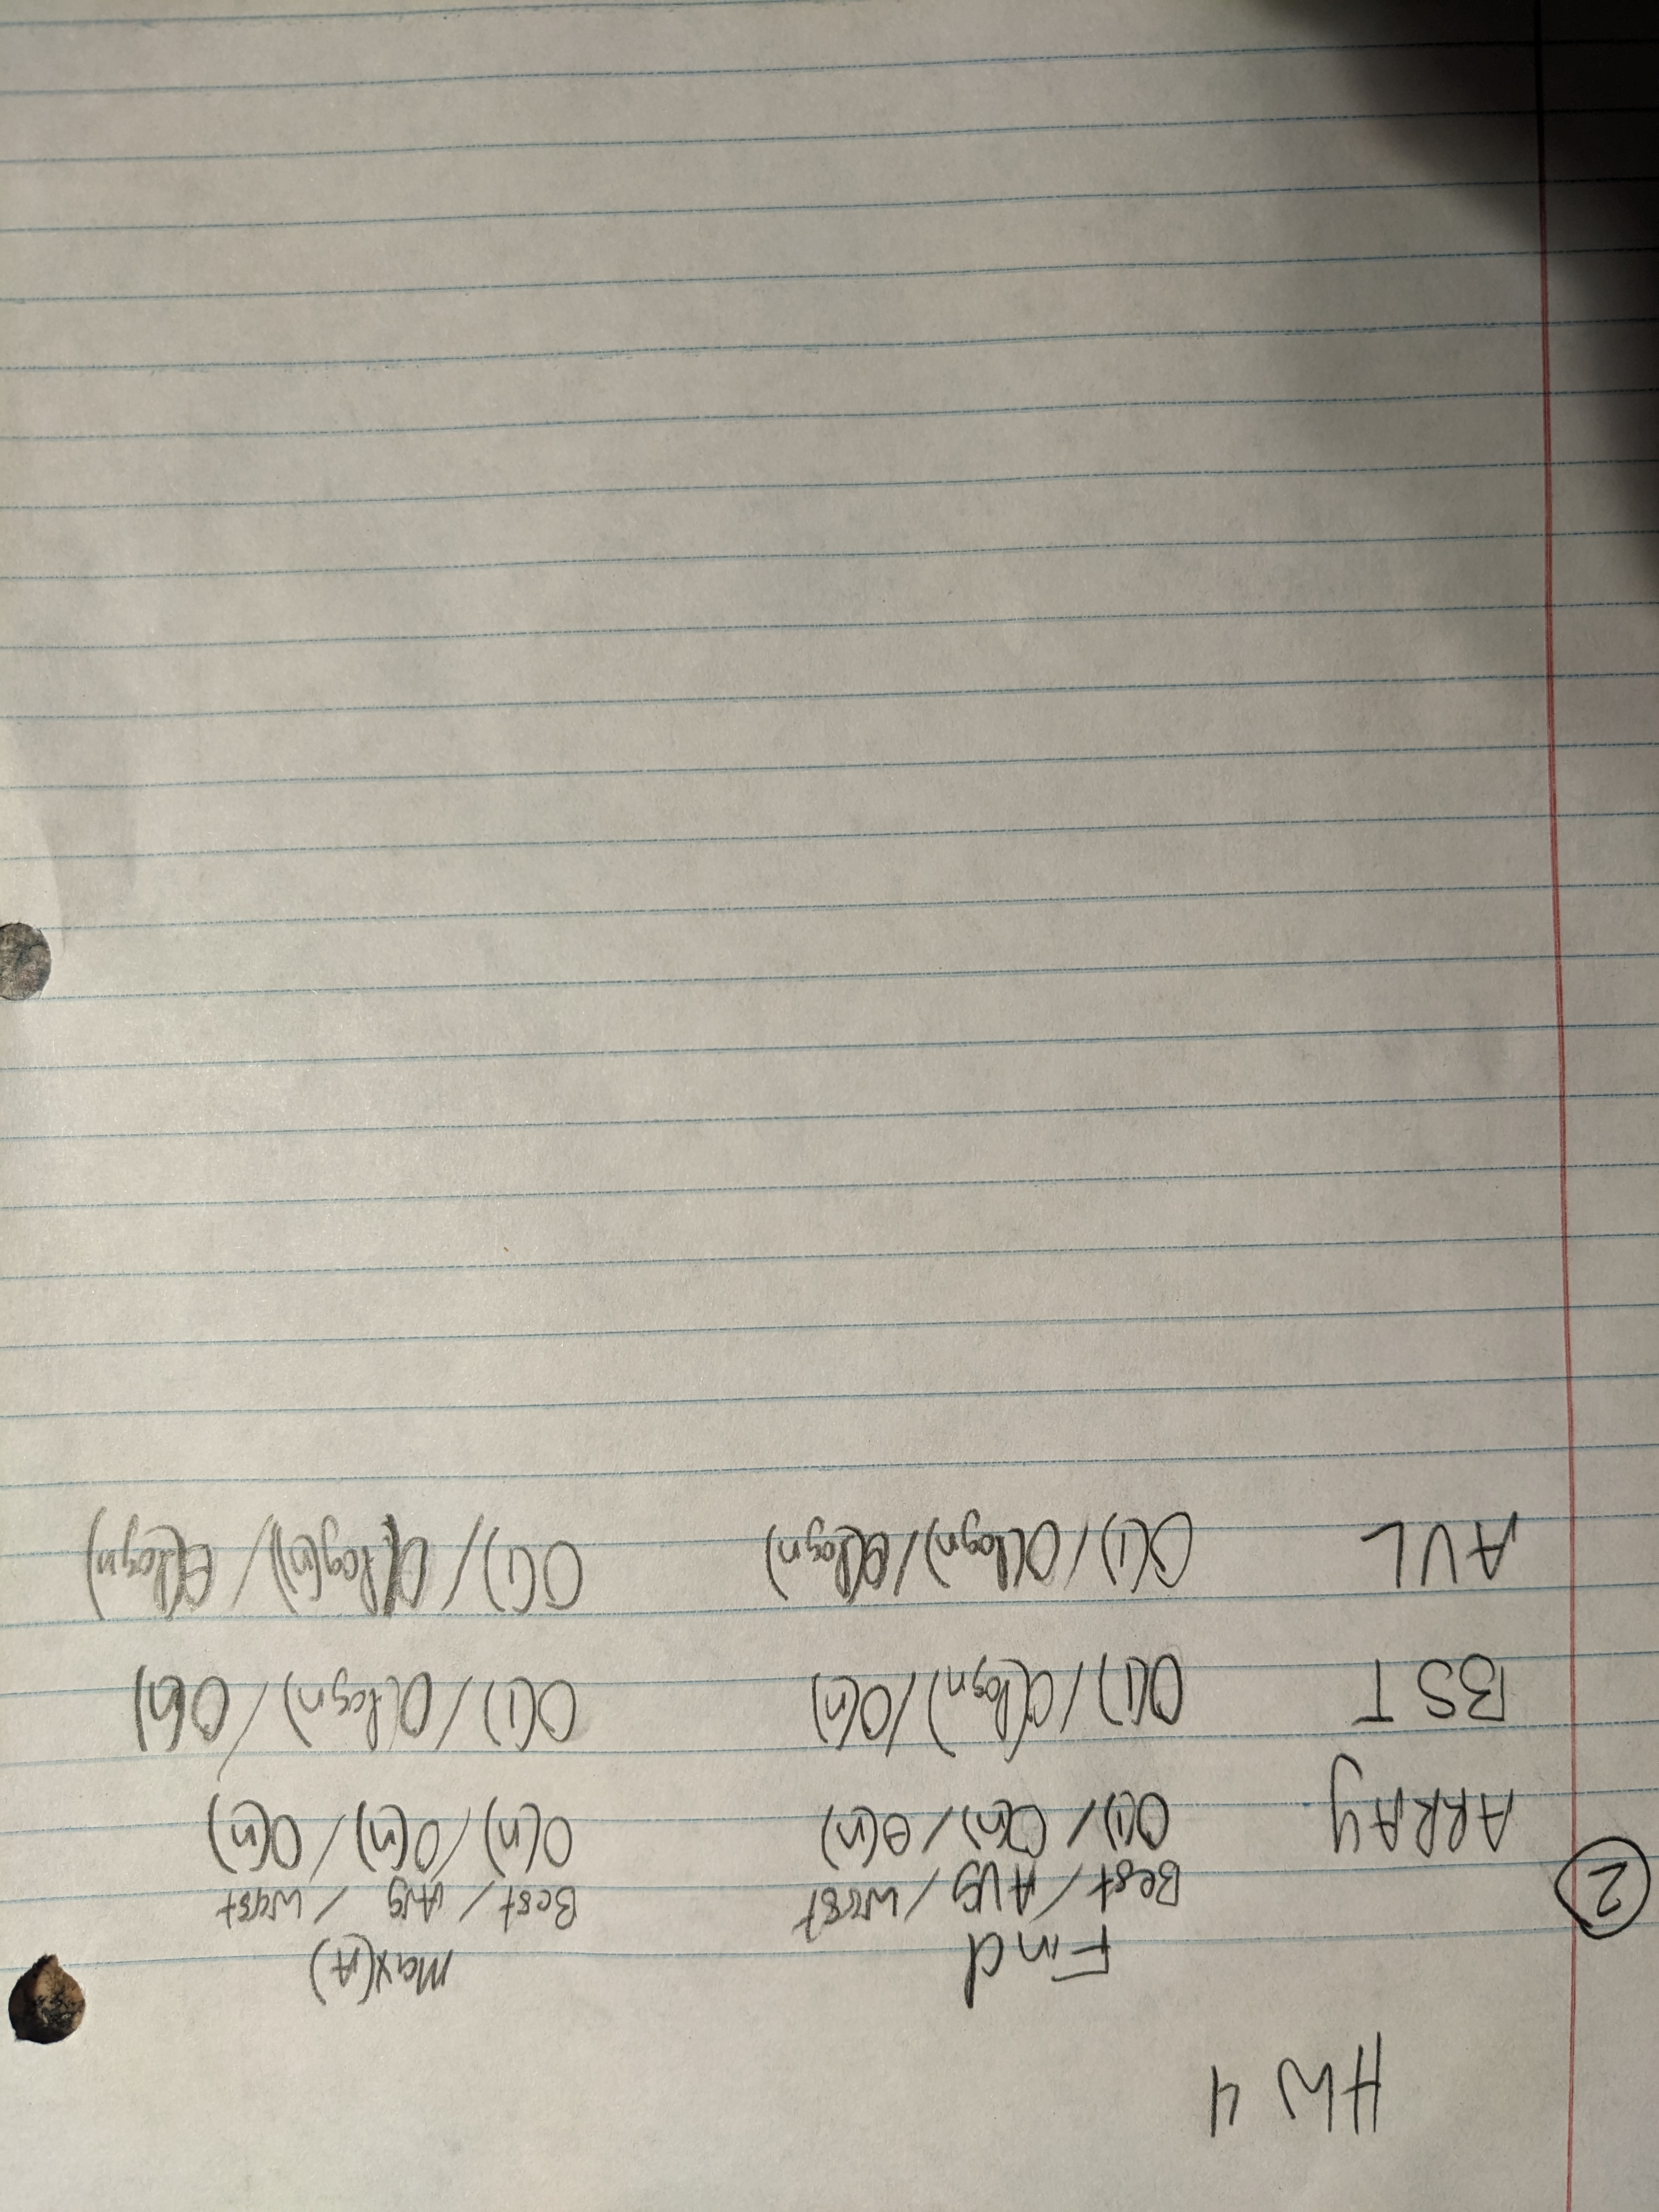 HW 4
Find Max(A)
② Best / AVG / Worst Best / Avg / Worst
ARRAY O(1) / O(n) / θ(n) O(n) / O(n) / O(n)
BST O(1) / O(log n) / O(n) O(1) / O(log n) / O(n)
AVL O(1) / O(log n) / θ(log n) O(1) / O(log(n)) / θ(log n)